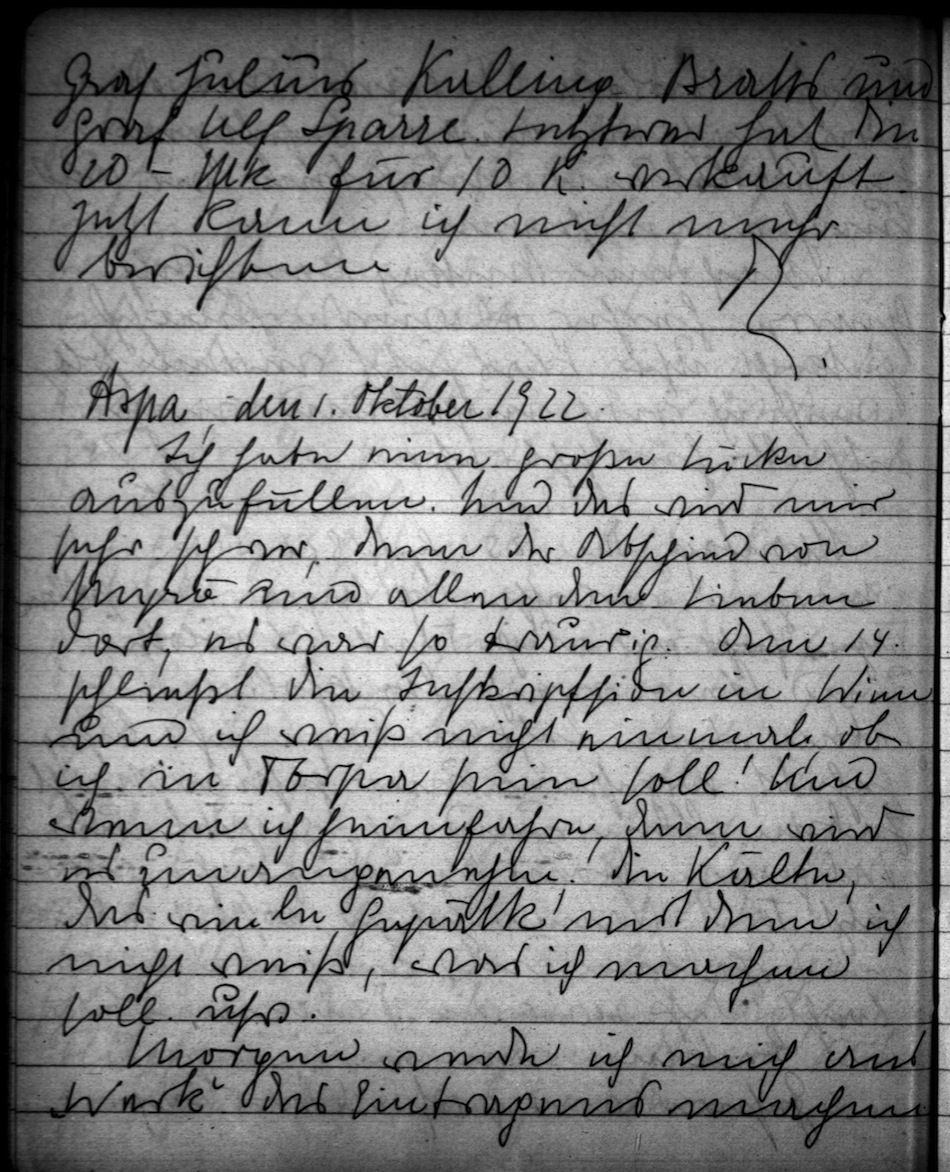 Graf Julius Kalling Bratts und
Graf Ulf Sparre. Letzterer hat die
20 - Mk für 10 K. verkauft
Jetzt kann ich nicht mehr
berichten
Aspa, den 1. Oktober 1922.
Ich habe eine große Lücke
auszufüllen. Und das wird mir
sehr schwer, denn der Abschied von
und allen den Lieben
dort, es war so traurig. Am 14.
schließt die Inskription in Wien
und ich weiß nicht einmal, ob
ich in Torpa sein soll! Und
wenn ich heimfahre, dann wird
es unangenehm! die Kälte,
das viele Gepäck mit dem ich
nicht weiß, was ich machen
soll. usw.
Morgen werde ich mich ans
Werk des Eintragens machen